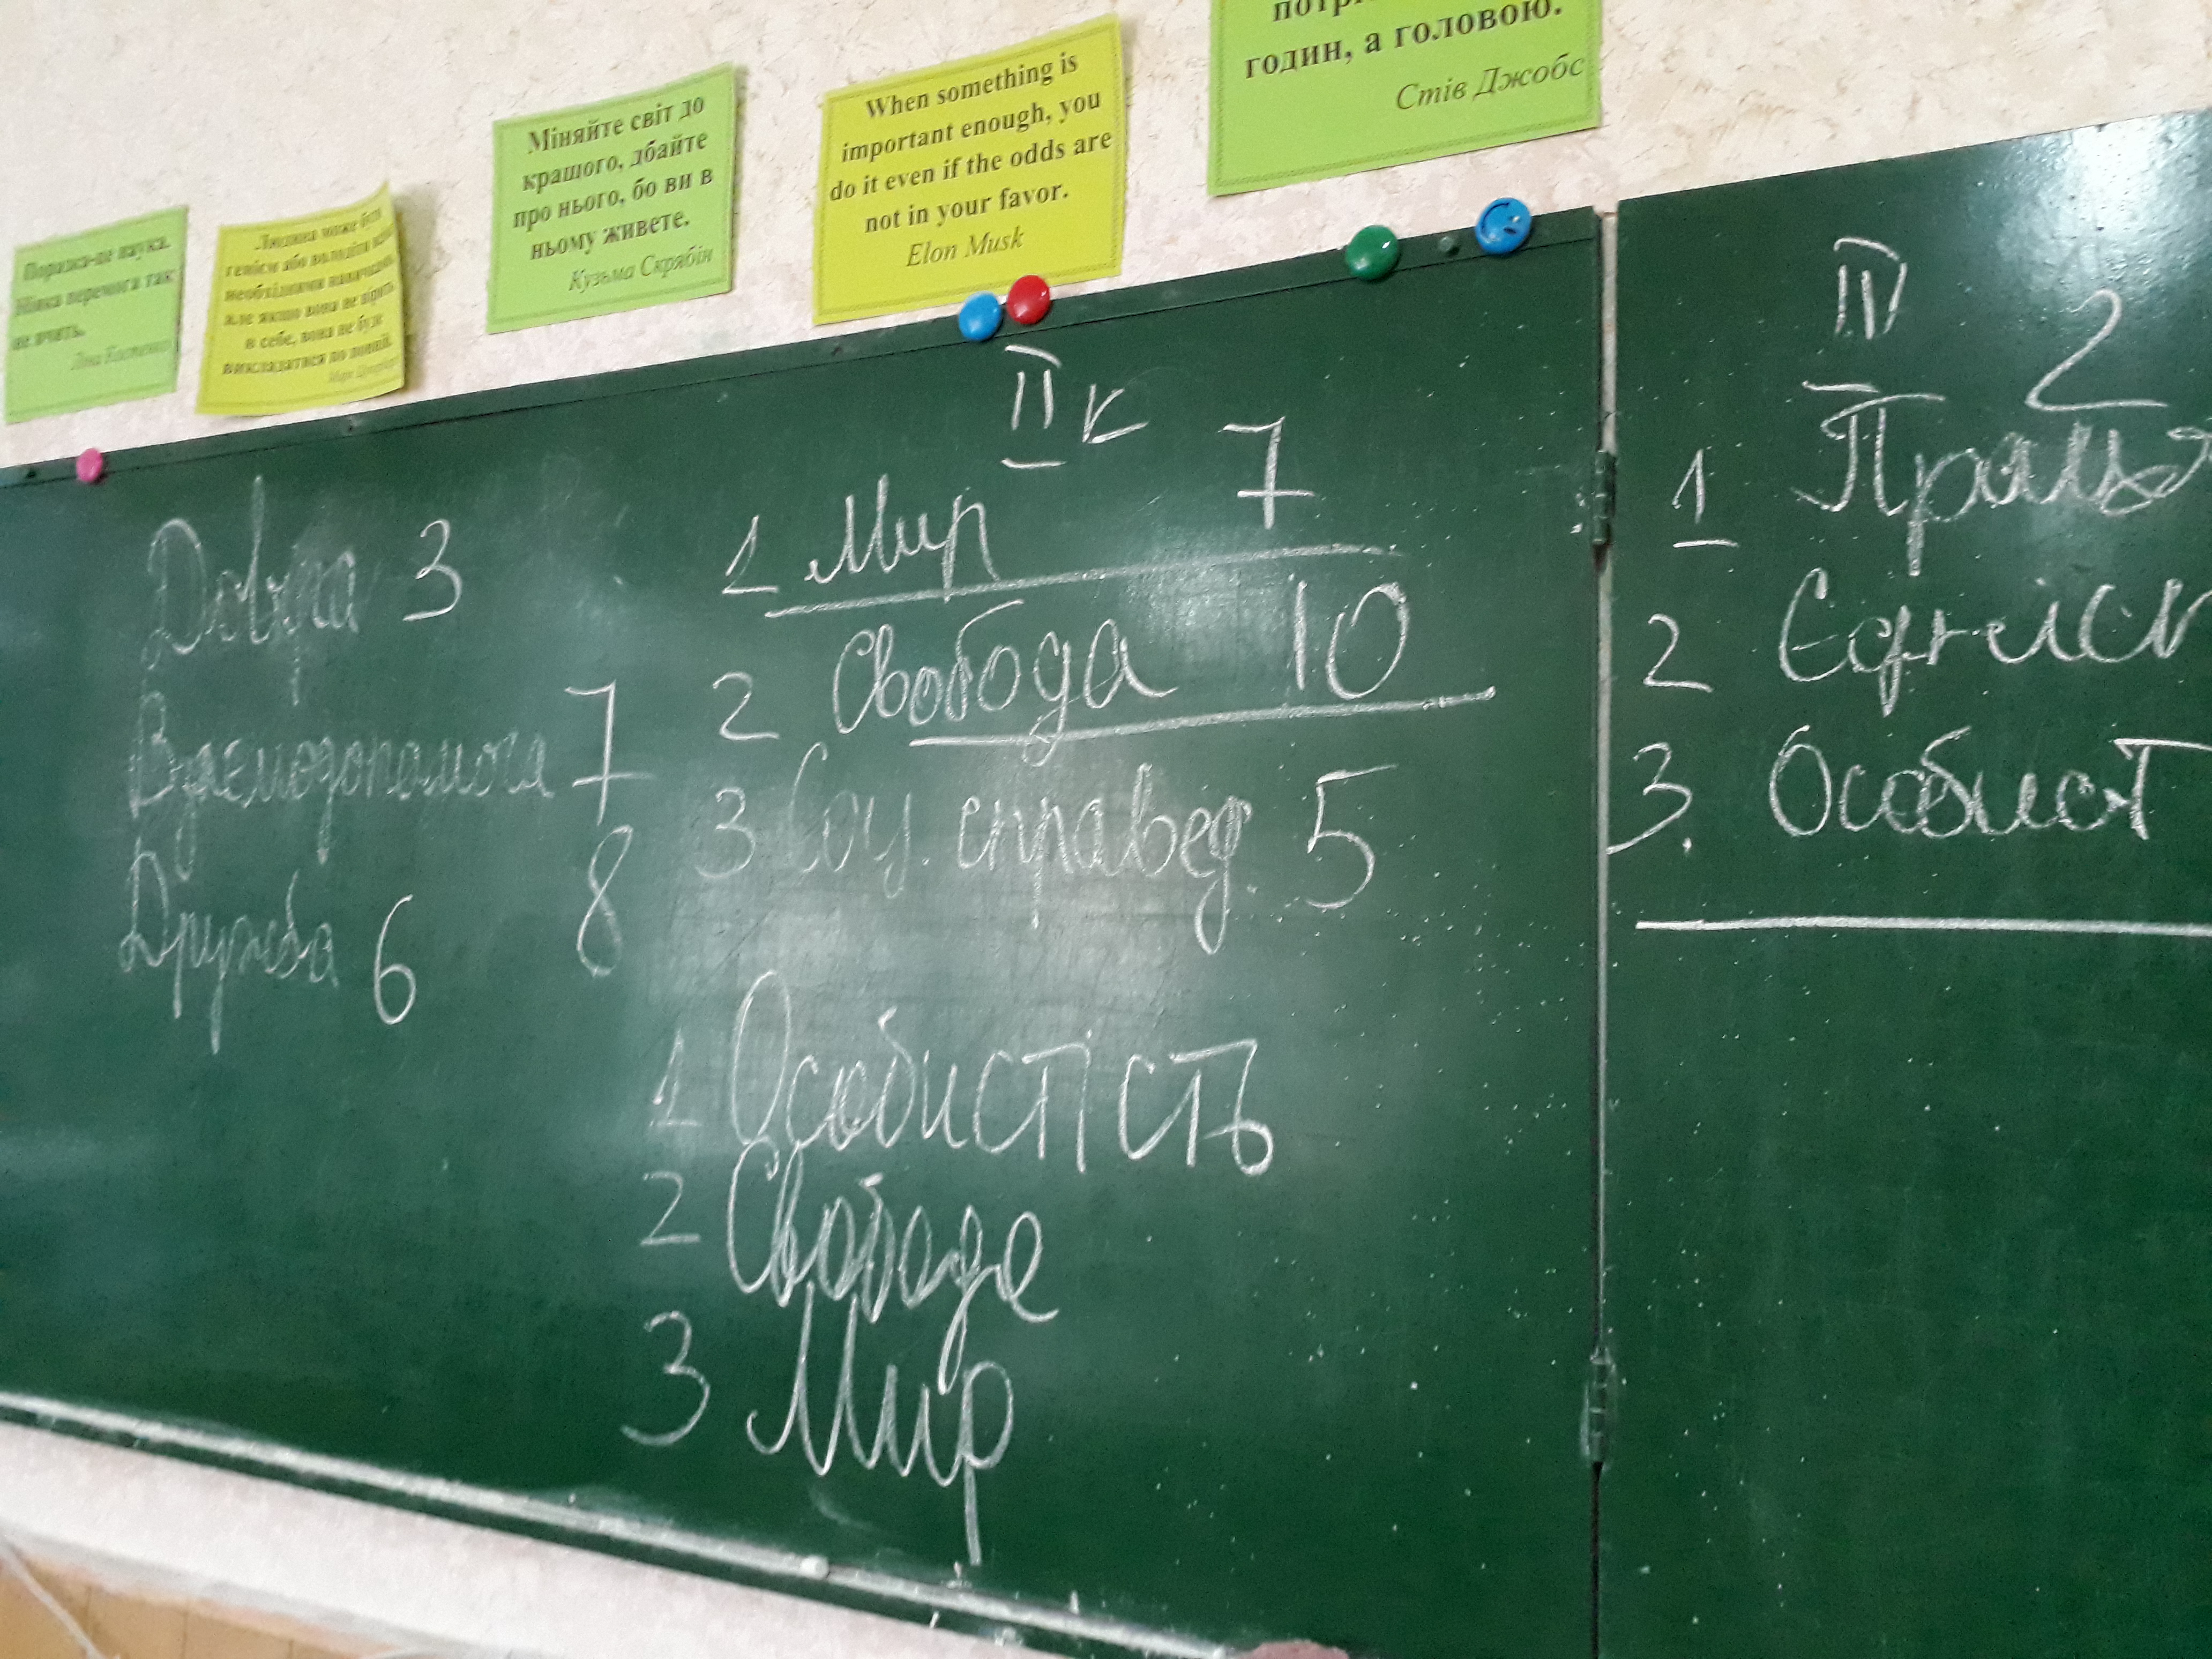 Поразка-це наука.
Ніяка перемога так
не вчить.
Ліна Костенко
Людина може бути
генієм або володіти всіма
необхідними навичками,
але якщо вона не вірить
в себе, вона не буде
викладатися по повній.
Міняйте світ до
кращого, дбайте
про нього, бо ви в
ньому живете.
Кузьма Скрябін
When something is
important enough, you
do it even if the odds are
not in your favor.
Elon Musk
годин, а головою.
Стів Джобс
Довіра 3
Взаємодопомога 7
8
Дружба 6
II к
1 Мир 7
2 Свобода 10
3 Соц. справед. 5
1 Особистість
2 Свобода
3 Мир
2
1
2 Єдніс
3. Особист